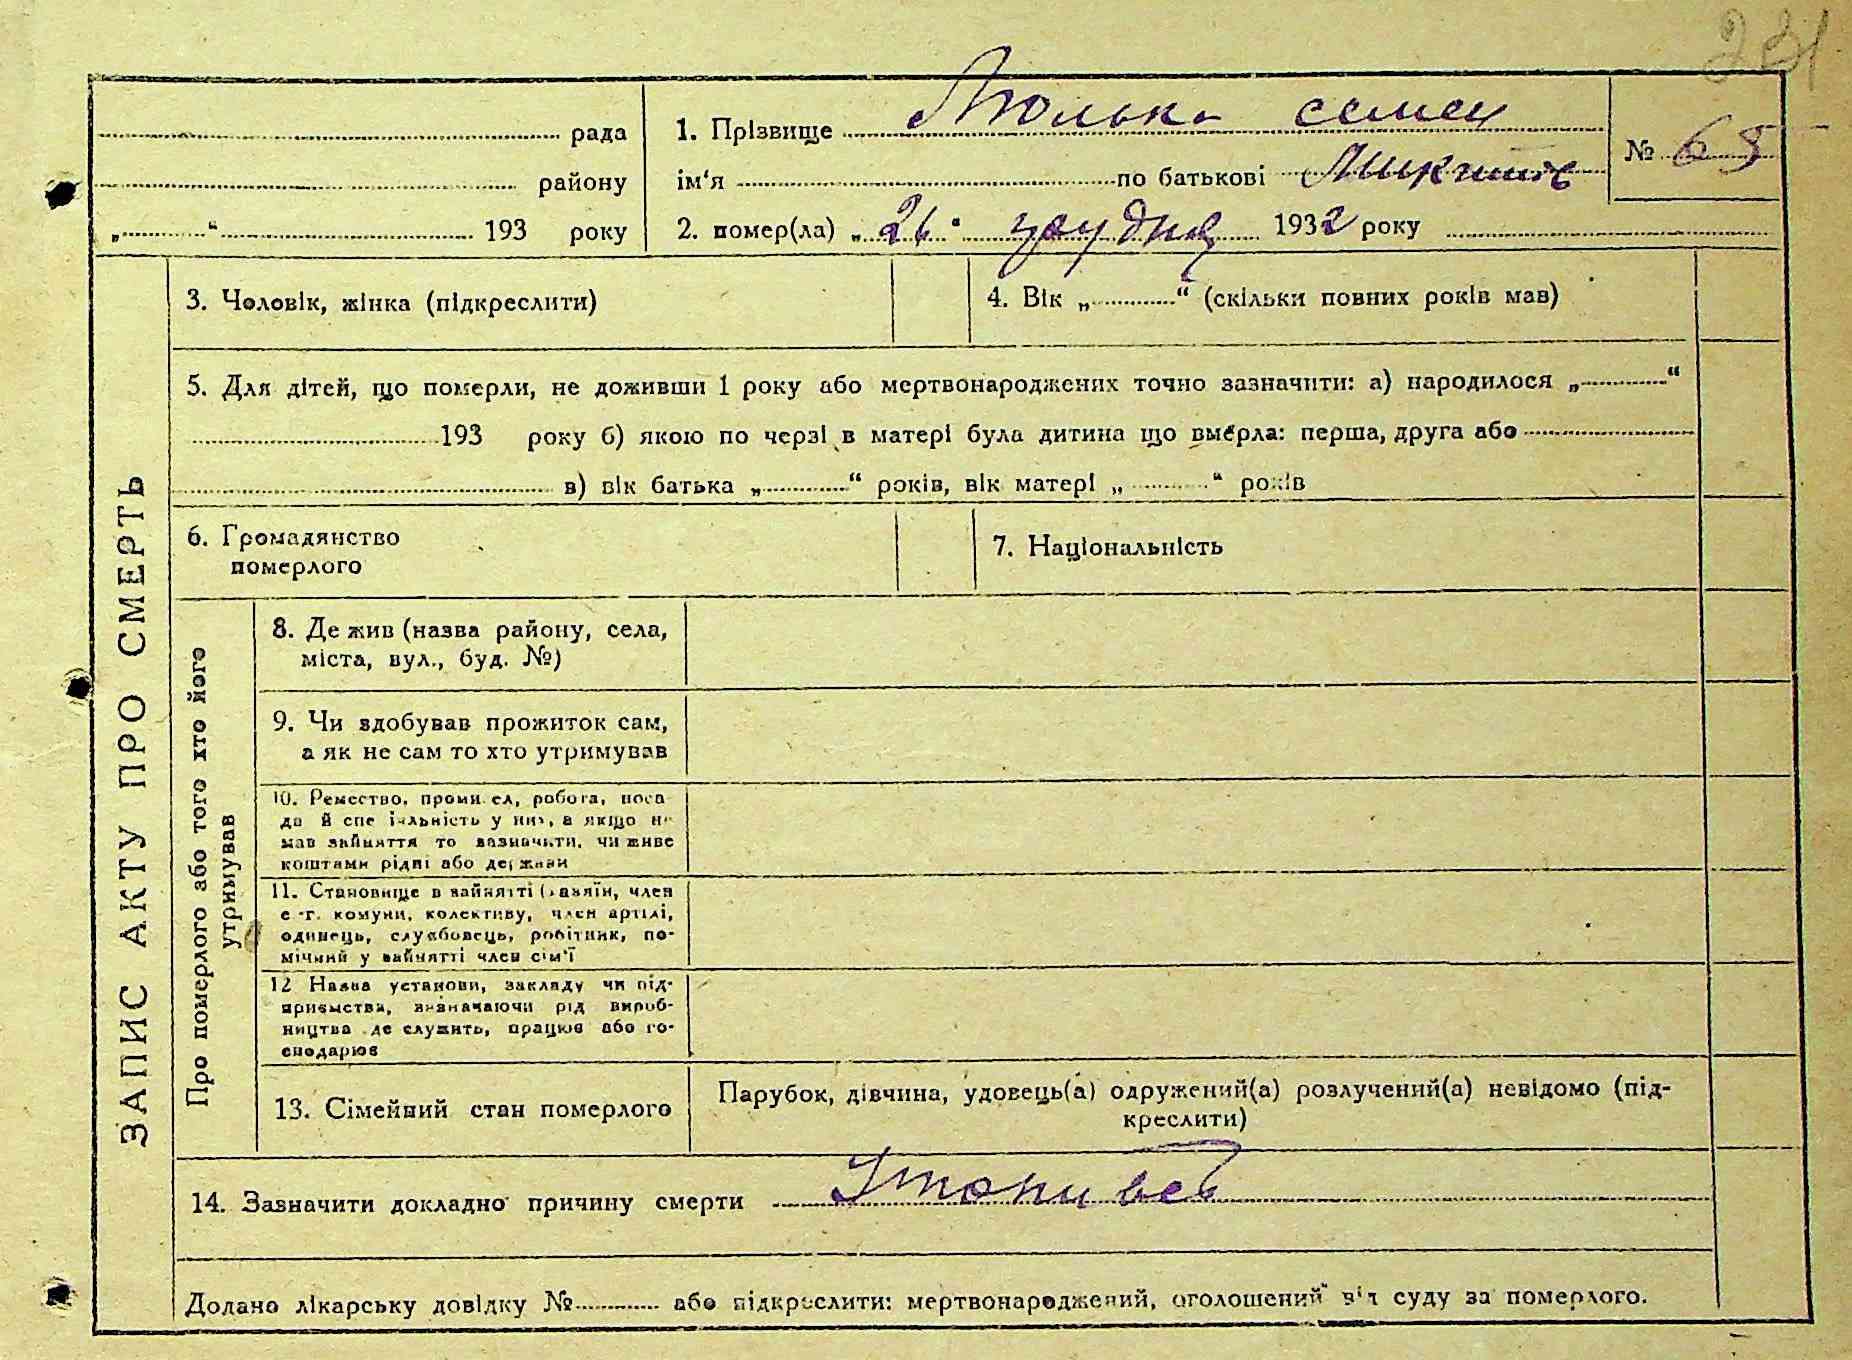 231
рада
району
„ “ 193 року
1. Прізвище Люлька семен
ім'я по батькові Микит
2. помер(ла) „26“ грудня 1932 року
№ 65
ЗАПИС АКТУ ПРО СМЕРТЬ
3. Чоловік, жінка (підкреслити)
4. Вік „ “ (скільки повних років мав)
5. Для дітей, що померли, не доживши 1 року або мертвонароджених точно зазначити: а) народилося „ “
193 року б) якою по черзі в матері була дитина що вмерла: перша, друга або
в) вік батька „ “ років, вік матері „ “ років
6. Громадянство
померлого
7. Національність
Про померлого або того хто його
утримував
8. Де жив (назва району, села,
міста, вул., буд. №)
9. Чи здобував прожиток сам,
а як не сам то хто утримував
10. Ремество, промисел, робота, поса-
да й спеціяльність у них, а якщо не
мав зайняття то зазначити, чи живе
коштами рідні або держави
11. Становище в зайнятті (хазяїн, член
с-г. комуни, колективу, член артілі,
одинець, службовець, робітник, по-
мічний у зайнятті член сім'ї
12 Назва установи, закладу чи під-
приємства, визначаючи рід вироб-
ництва де служить, працює або го-
сподарює
13. Сімейний стан померлого
Парубок, дівчина, удовець(а) одружений(а) розлучений(а) невідомо (під-
креслити)
14. Зазначити докладно причину смерти Утопивсь
Додано лікарську довідку № або підкреслити: мертвонароджений, оголошений від суду за померлого.